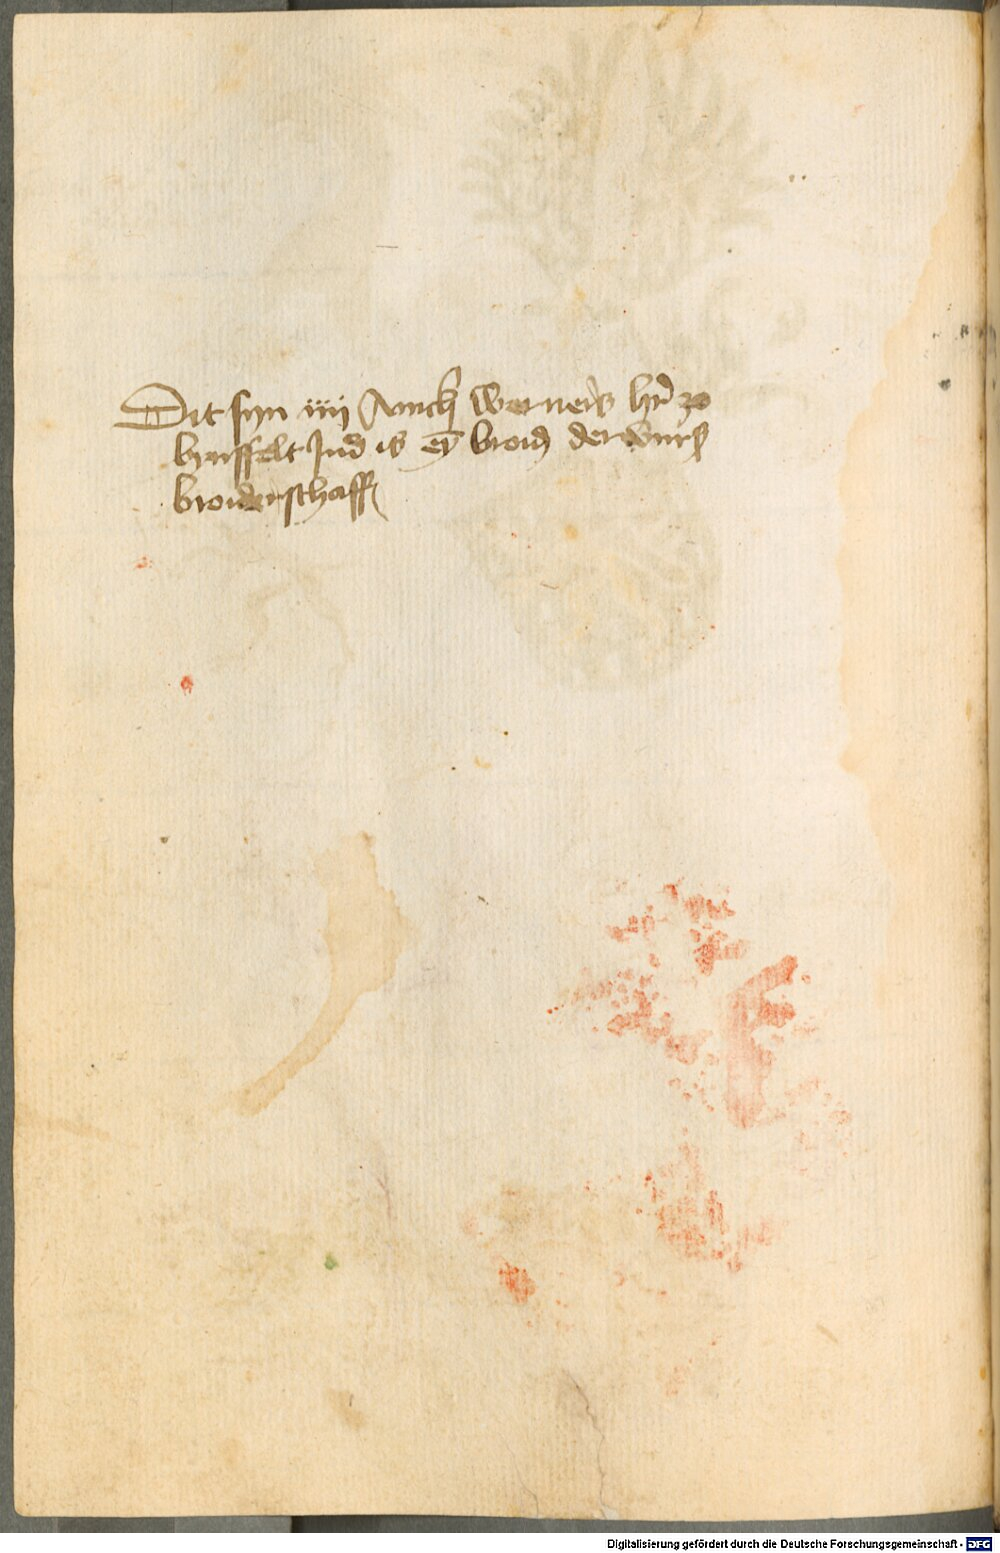 Dit syn iiij Anich Werners hr̄ zo
byrsfelt Ind is ey̅ broid̅ der
broiderschaff
Digitalisierung gefördert durch die Deutsche Forschungsgemeinschaft - DFG